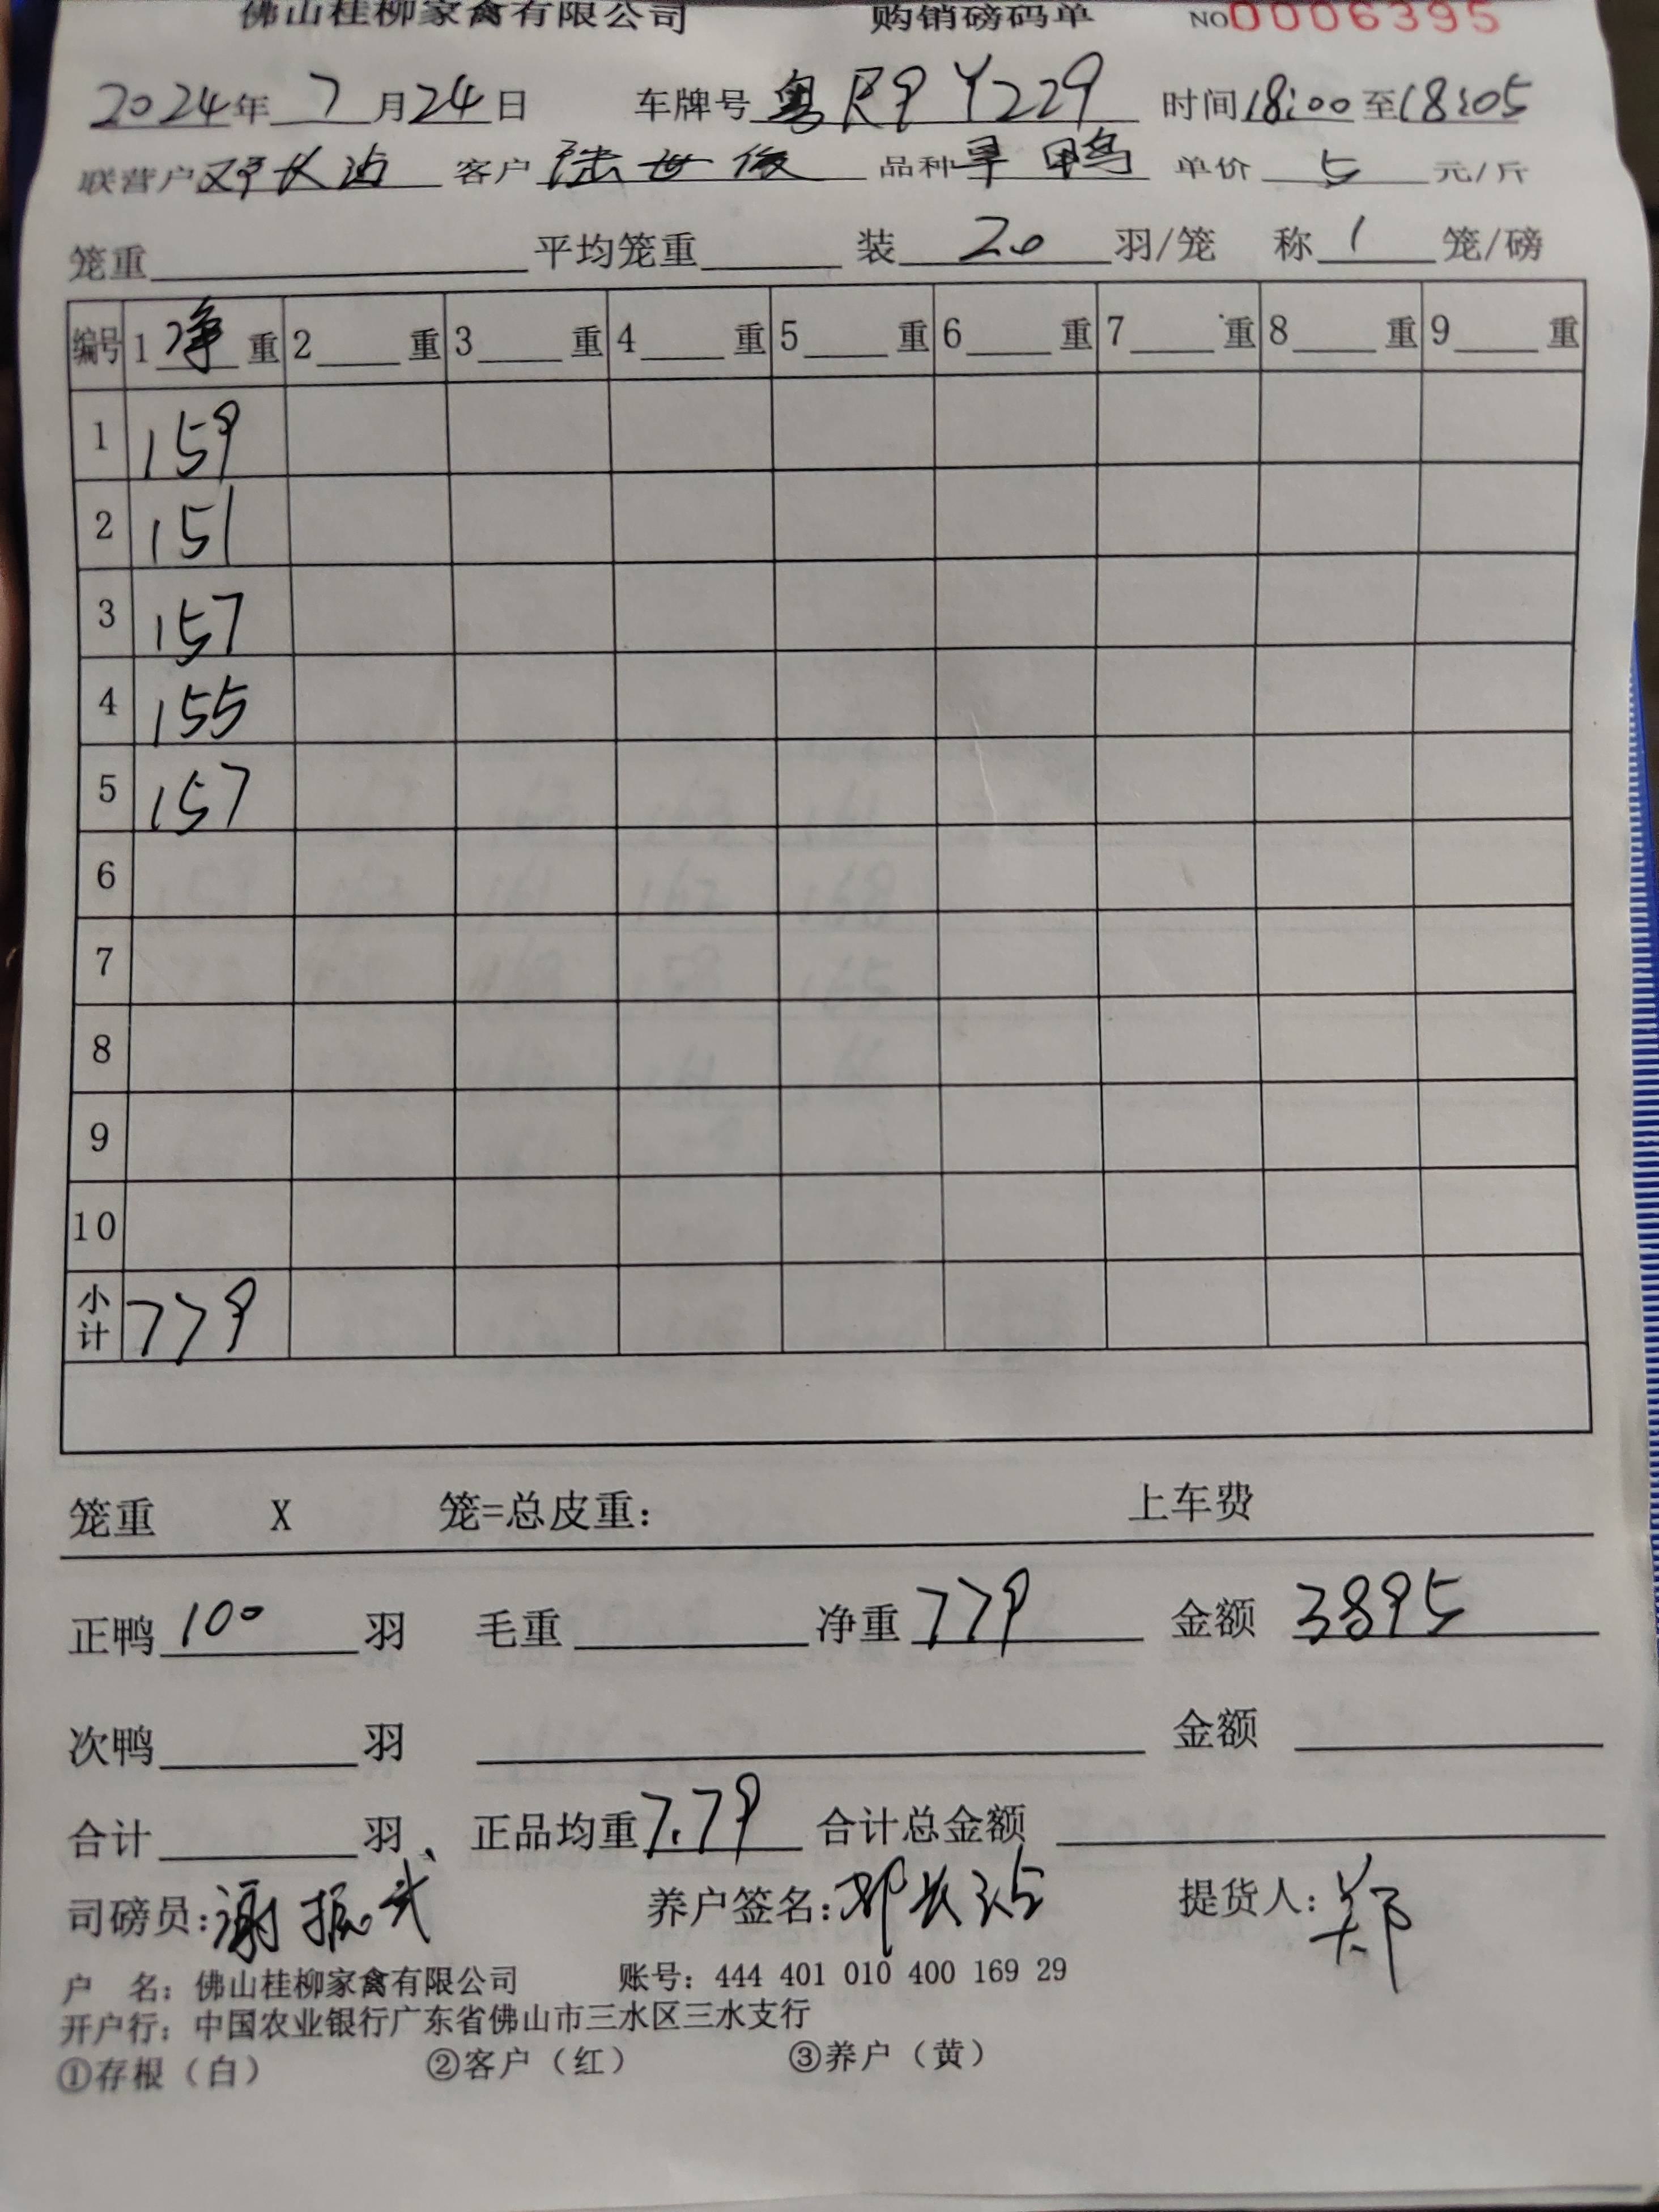 佛山桂柳家禽有限公司 购销磅码单 NO0006395
2024年 7 月24日 车牌号 粤R9Y229 时间18:00至18:05
联营户邓长沾 客户 陆世俊 品种旱鸭 单价 5 元/斤
笼重 平均笼重 装 20 羽/笼 称 1 笼/磅
编号 1净重 2 重 3 重 4 重 5 重 6 重 7 重 8 重 9 重
1 159
2 151
3 157
4 155
5 157
6
7
8
9
10
小计 779
笼重 X 笼=总皮重: 上车费
正鸭 100 羽 毛重 净重 779 金额 3895
次鸭 羽 金额
合计 羽、 正品均重7.79 合计总金额
司磅员:谢振 养户签名:邓长沾 提货人:郑
户 名: 佛山桂柳家禽有限公司 账号: 444 401 010 400 169 29
开户行: 中国农业银行广东省佛山市三水区三水支行
①存根(白) ②客户(红) ③养户(黄)